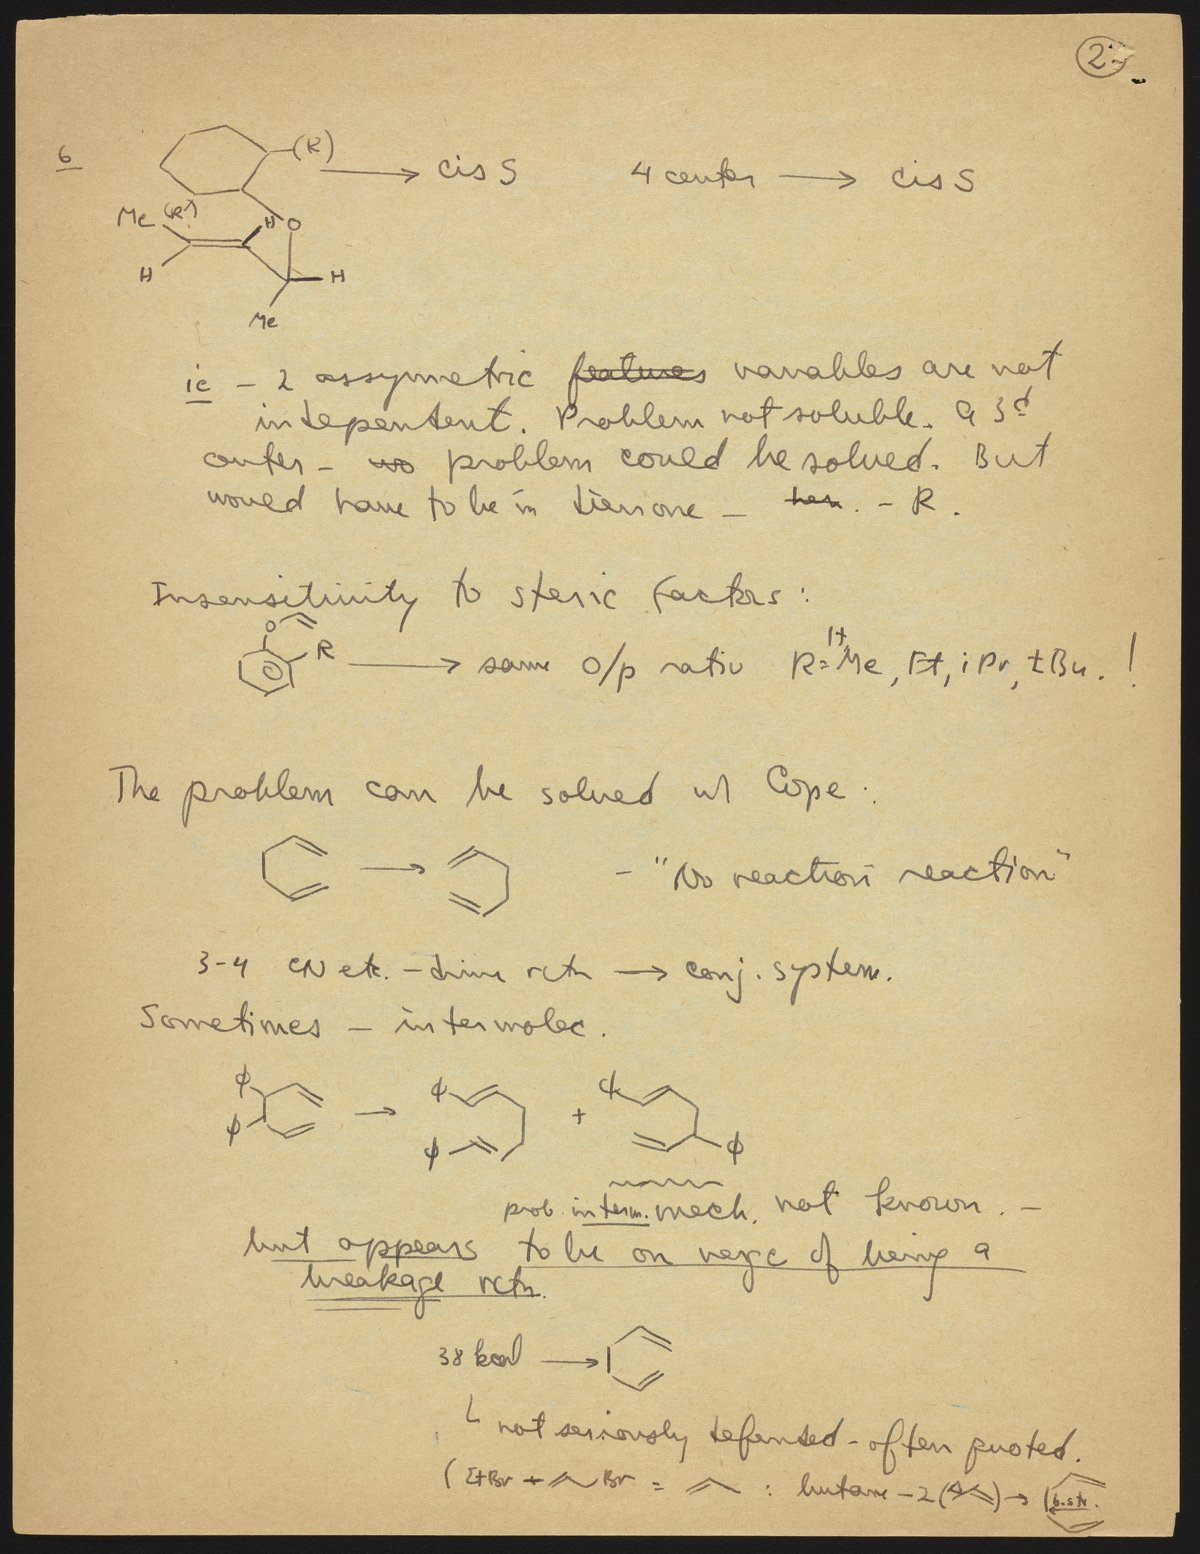 2
6
(R) → cis S 4 center → cis S
Me (R') H O
H H
Me
ie - 2 assymmetric features variables are not
indepentent. Problem not soluble. a 3d
center - no problem could be solved. But
would have to be in dienone - - R.
Insensitivity to steric factors:
O
R → same o/p ratio R = H, Me, Et, iPr, tBu. !
The problem can be solved w/ Cope.
→ - "No reaction reaction"
3-4 CN etc. - drive rctn → conj. system.
Sometimes - intermolec.
φ → φ + φ
φ φ φ
prob. interm. mech. not known. -
but appears to be on verge of being a
breakage rctn.
38 kcal →
not seriously defended - often quoted.
(EtBr + Br = : butane - 2 ( ) →